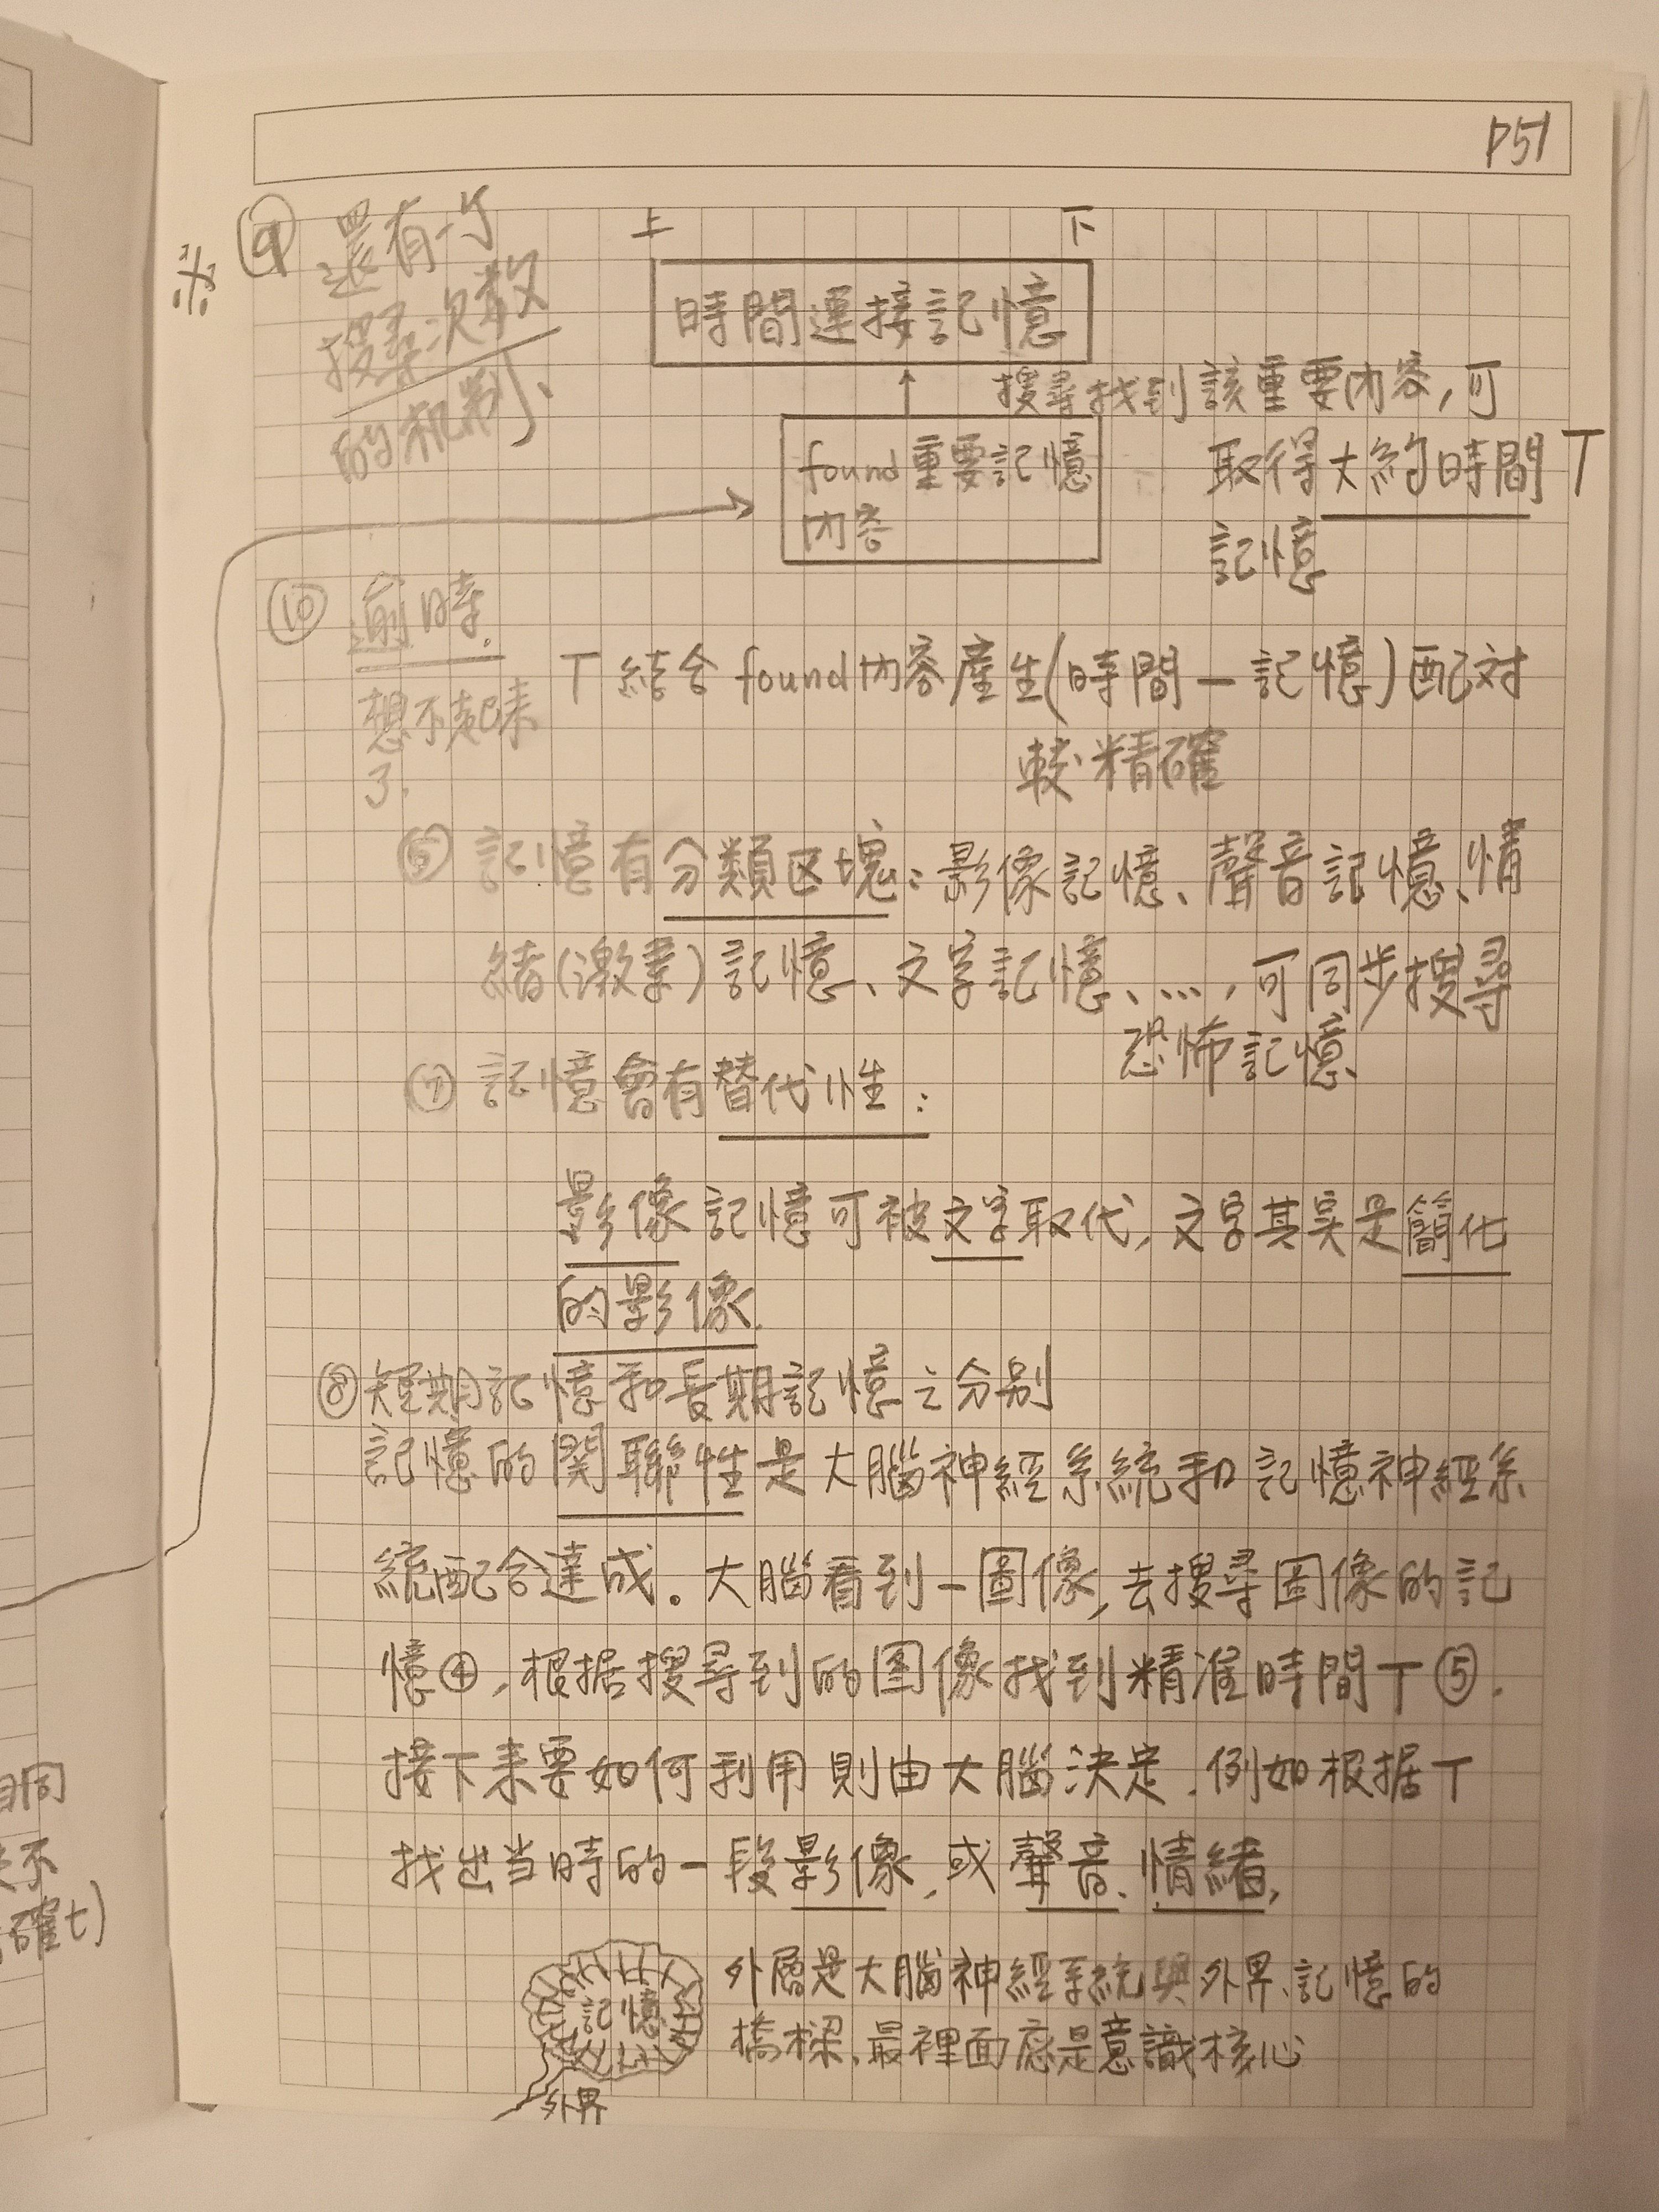 P51
※ ⑨ 還有一个
搜尋次数
的机制、
上 下
時間連接記憶
搜尋找到該重要內容,可
取得大約時間T
記憶
found重要記憶
內容
⑩ 逾時.
想不起來
了.
T 結合 found內容產生(時間－記憶)配对
較精確
⑥ 記憶有分類区塊:影像記憶、聲音記憶、情
緒(激素)記憶、文字記憶、…,可同步搜尋
恐怖記憶
⑦ 記憶會有替代性:
影像記憶可被文字取代,文字其实是簡化
的影像.
⑧短期記憶和長期記憶之分别
記憶的関聯性是大腦神經系統和記憶神經系
統配合達成。大腦看到一圖像,去搜尋圖像的記
憶④,根据搜尋到的图像找到精准時間T⑤.
接下来要如何利用則由大腦決定.例如根据T
找出当時的一段影像,或聲音、情緒,
記憶
外界
外層是大腦神經系統與外界、記憶的
橋樑,最裡面應是意識核心
自同
不
確t)